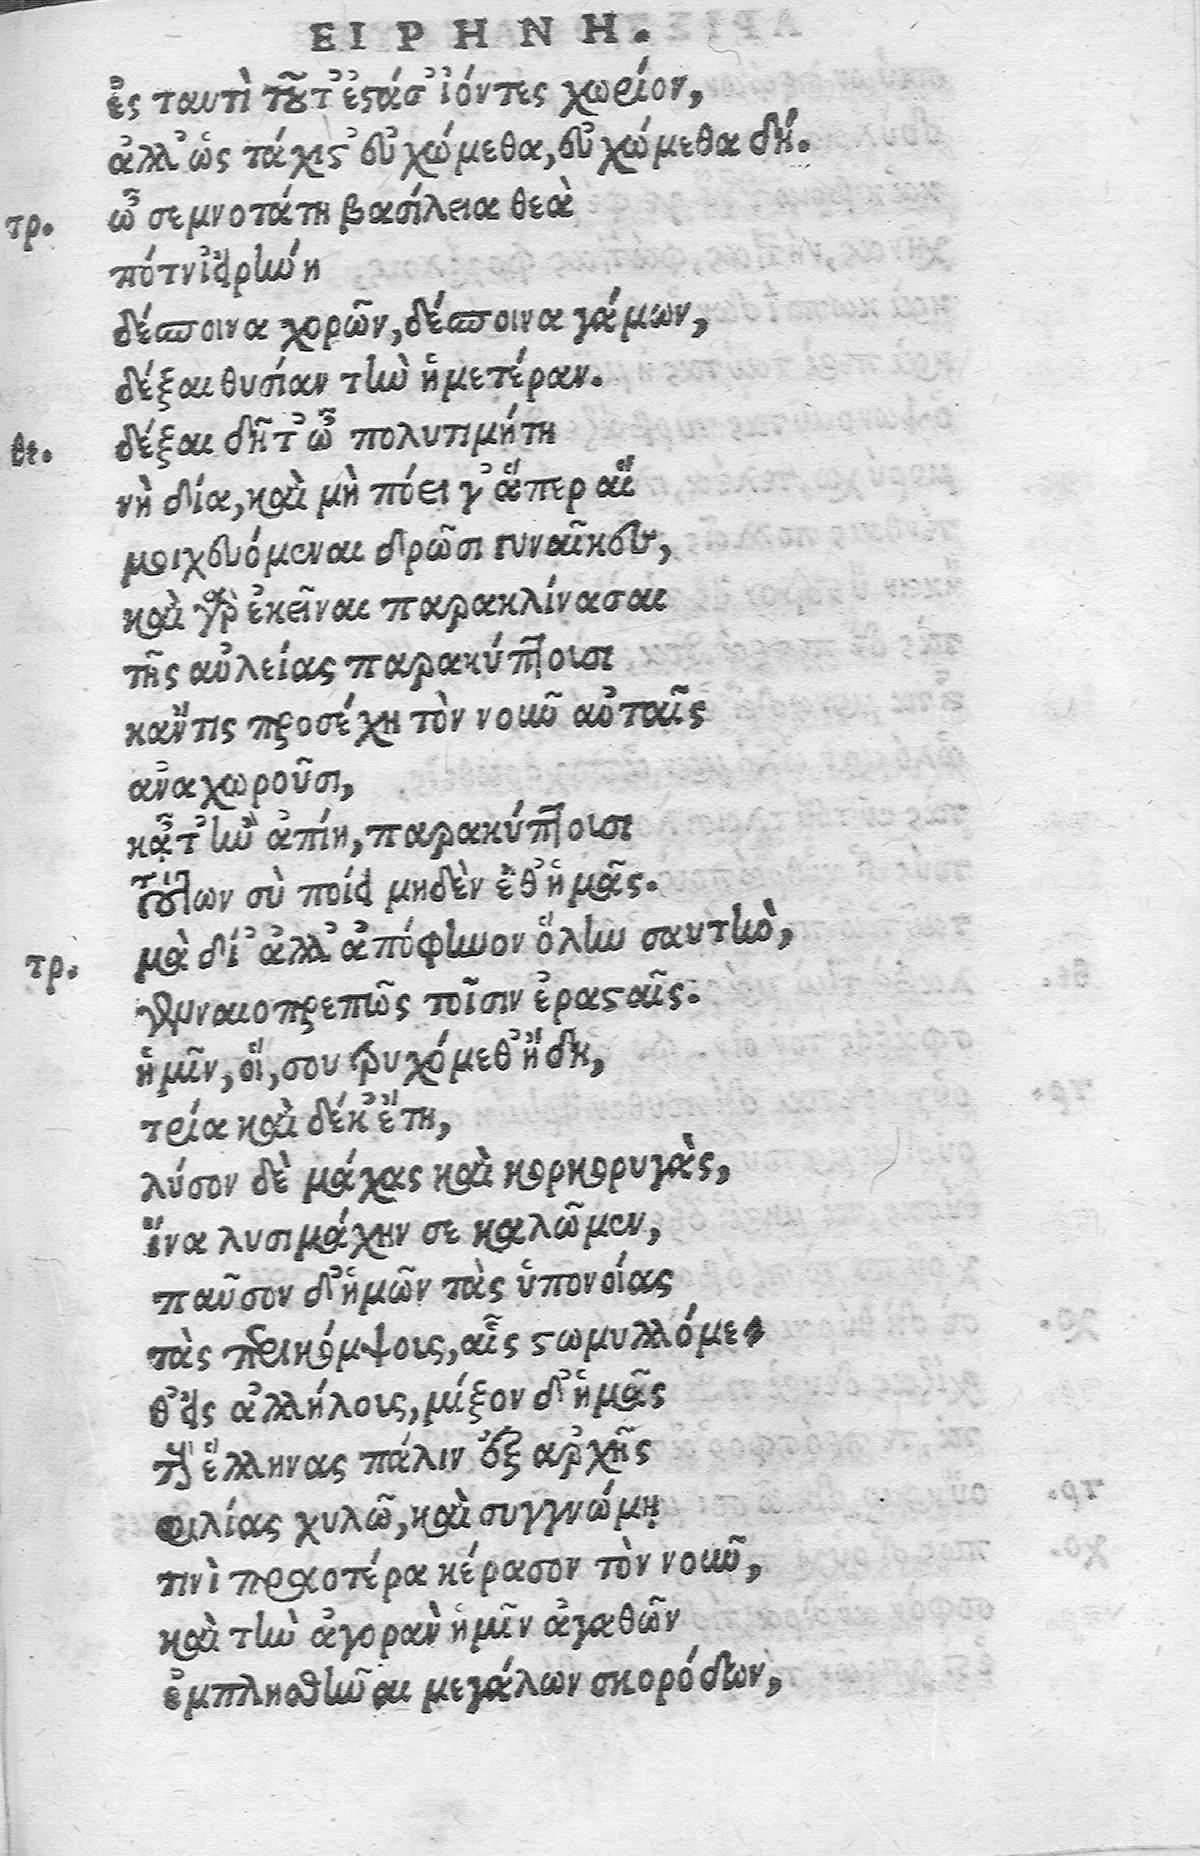 ΕΙΡΗΝΗ.
ἐς ταυτὶ τοῦτ' ἑστᾶσ' ἰόντες χωρίον,
ἀλλ' ὡς τάχιστ' εὐχώμεθα, εὐχώμεθα δή.
τρ. ὦ σεμνοτάτη βασίλεια θεὰ
πότνι' εἰρήνη
δέσποινα χορῶν, δέσποινα γάμων,
δέξαι θυσίαν τὴν ἡμετέραν.
θε. δέξαι δῆτ' ὦ πολυτιμήτη
νὴ δία, καὶ μὴ πόει γ' ἅπερ αἱ
μοιχευόμεναι δρῶσι γυναῖκες,
καὶ γὰρ ἐκεῖναι παρακλίνασαι
τῆς αὐλείας παρακύπτουσι
κἄν τις προσέχῃ τὸν νοῦν αὐταῖς
ἀναχωροῦσι,
κᾆτ' ἢν ἀπίῃ, παρακύπτουσι
τούτων σὺ ποίει μηδὲν ἔθ' ἡμᾶς.
τρ. μὰ δί' ἀλλ' ἀπόφηνον ὅλην σαυτὴν,
γενναιοπρεπῶς τοῖσιν ἐρασταῖς.
ἡμῖν, οἵ, σου τρυχόμεθ' ἤδη,
τρία καὶ δέκ' ἔτη,
λύσον δὲ μάχας καὶ κορκορυγὰς,
ἵνα λυσιμάχην σε καλῶμεν,
παῦσον δ' ἡμῶν τὰς ὑπονοίας
τὰς περικόμψους, αἷς στωμυλλόμε-
θ' εἰς ἀλλήλους, μίξον δ' ἡμᾶς
τοὺς ἕλληνας πάλιν ἐξ ἀρχῆς
φιλίας χυλῷ, καὶ συγγνώμῃ
τινὶ πρᾳοτέρᾳ κέρασον τὸν νοῦν,
καὶ τὴν ἀγορὰν ἡμῖν ἀγαθῶν
ἐμπλησθῆναι μεγάλων σκορόδων,